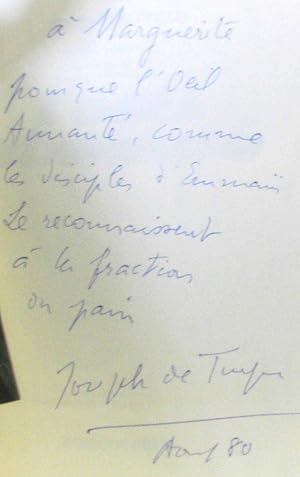 à Marguerite
pour que l'Oeil
Aimanté, comme
les disciples d'Emmaüs
Le reconnaissent
à la fraction
du pain
Joseph de
80